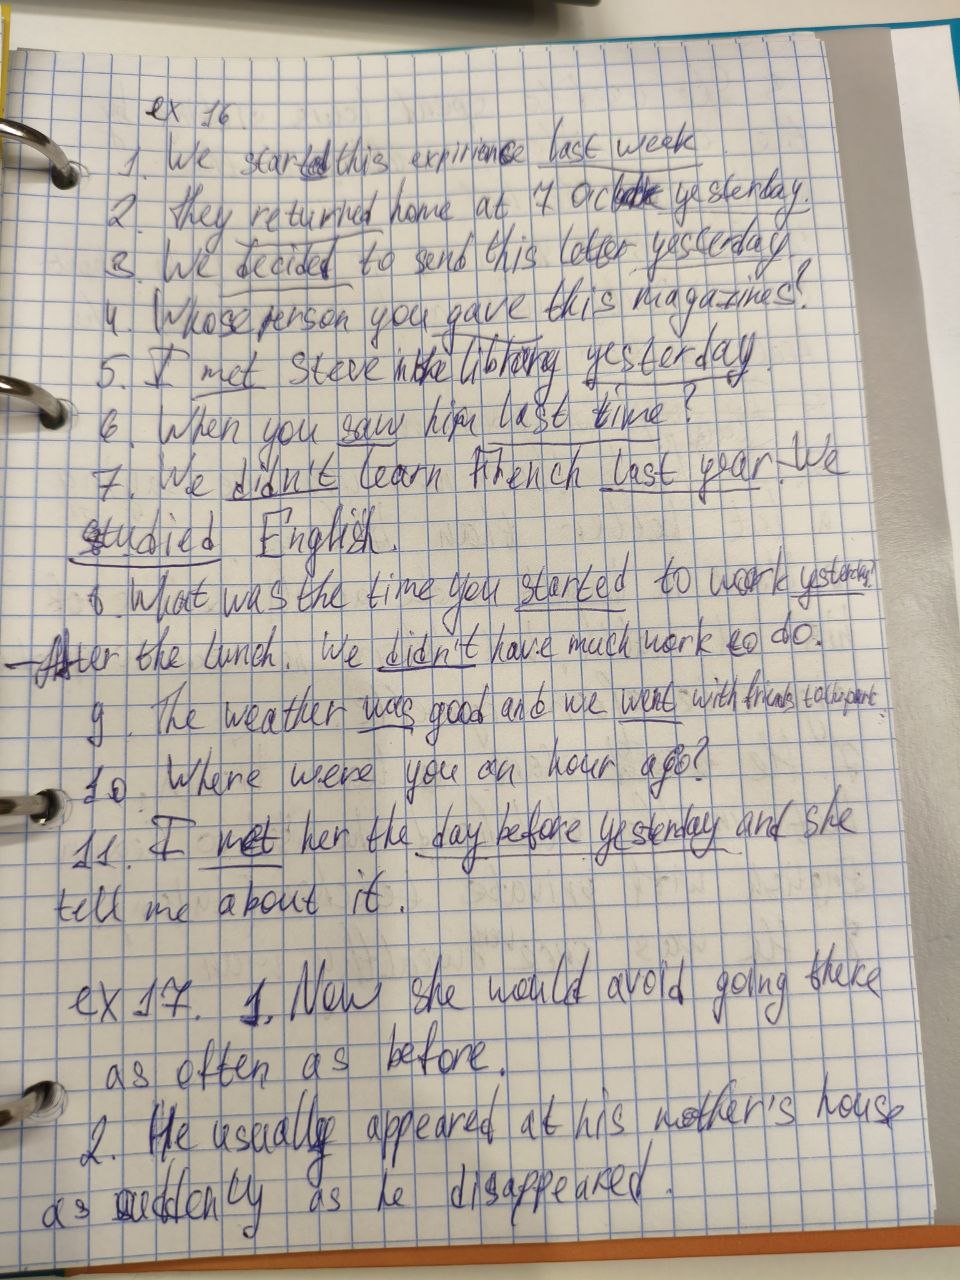 ex 16.
1. We started this expirience last week.
2. They returned home at 7 yesterday.
3. We decided to send this letter yesterday
4. Whose person you gave this magazines?
5. I met Steve in the yesterday
6. When you saw him last time?
7. We didn't learn French last year. We
studied English.
8 What was the time you started to work yesterday?
- After the lunch. We didn't have much work to do.
9. The weather was good and we went with friends to
10. Where were you an hour ago?
11. I met her the day before yesterday and she
tell me about it.
ex 17. 1. Now she would avoid going there
as often as before.
2. He usually appeared at his mother's house
as suddenly as he disappeared.